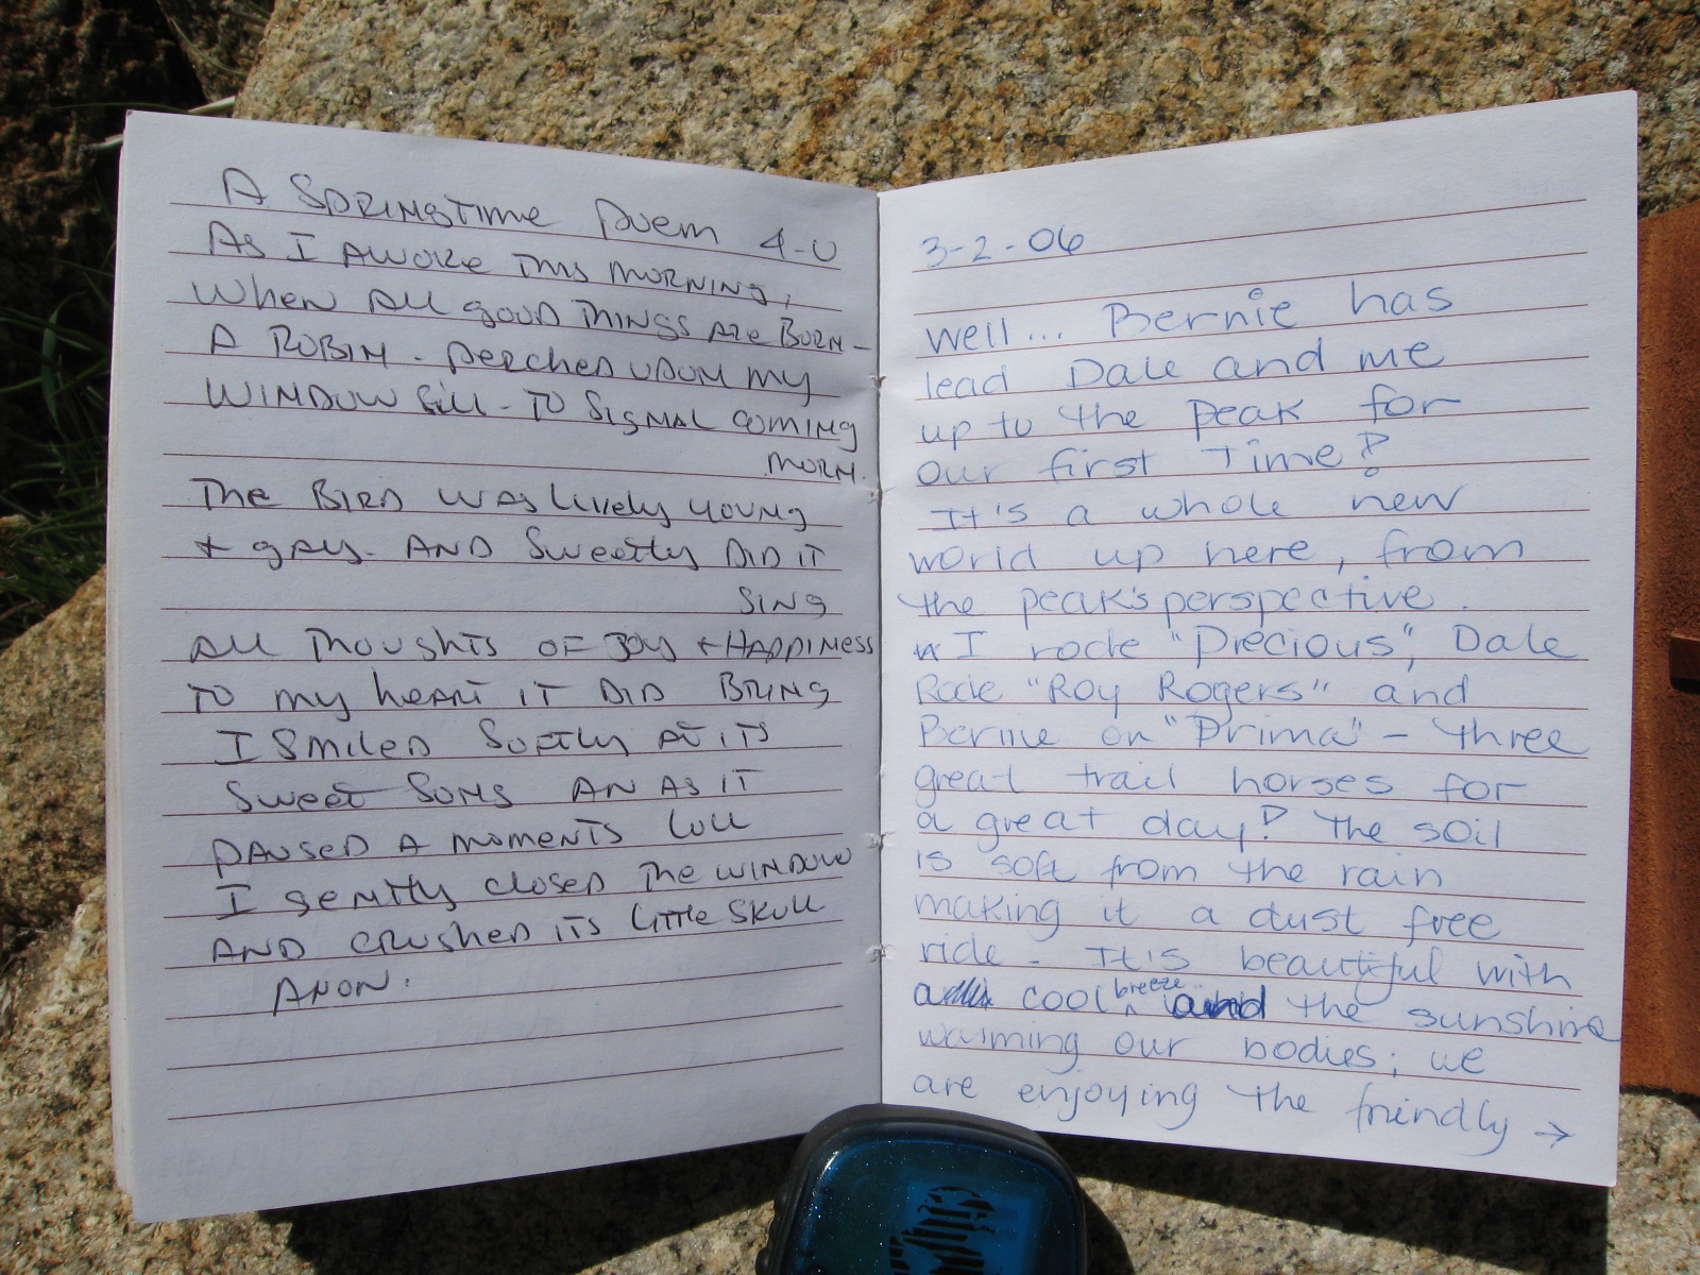 A SPRINGTIME POEM 4-U
AS I AWOKE THIS MORNING,
WHEN ALL GOOD THINGS ARE BORN-
A ROBIN - PERCHED UPON MY
WINDOW SILL - TO SIGNAL COMING
MORN.
THE BIRD WAS LIVELY YOUNG
+ GAY - AND SWEETLY DID IT
SING
ALL THOUGHTS OF JOY + HAPPINESS
TO MY HEART IT DID BRING
I SMILED SOFTLY AT ITS
SWEET SONG AN AS IT
PAUSED A MOMENTS LULL
I GENTLY CLOSED THE WINDOW
AND CRUSHED ITS LITTLE SKULL
ANON.
3-2-06
well... Bernie has
lead Dale and me
up to the peak for
our first Time!
It's a whole new
world up here, from
the peak's perspective.
I rode "Precious", Dale
Rode "Roy Rogers" and
Bernie on "Prima" - three
great trail horses for
a great day! The soil
is soft from the rain
making it a dust free
ride - It's beautiful with
a cool breeze and the sunshine
warming our bodies; we
are enjoying the friendly →